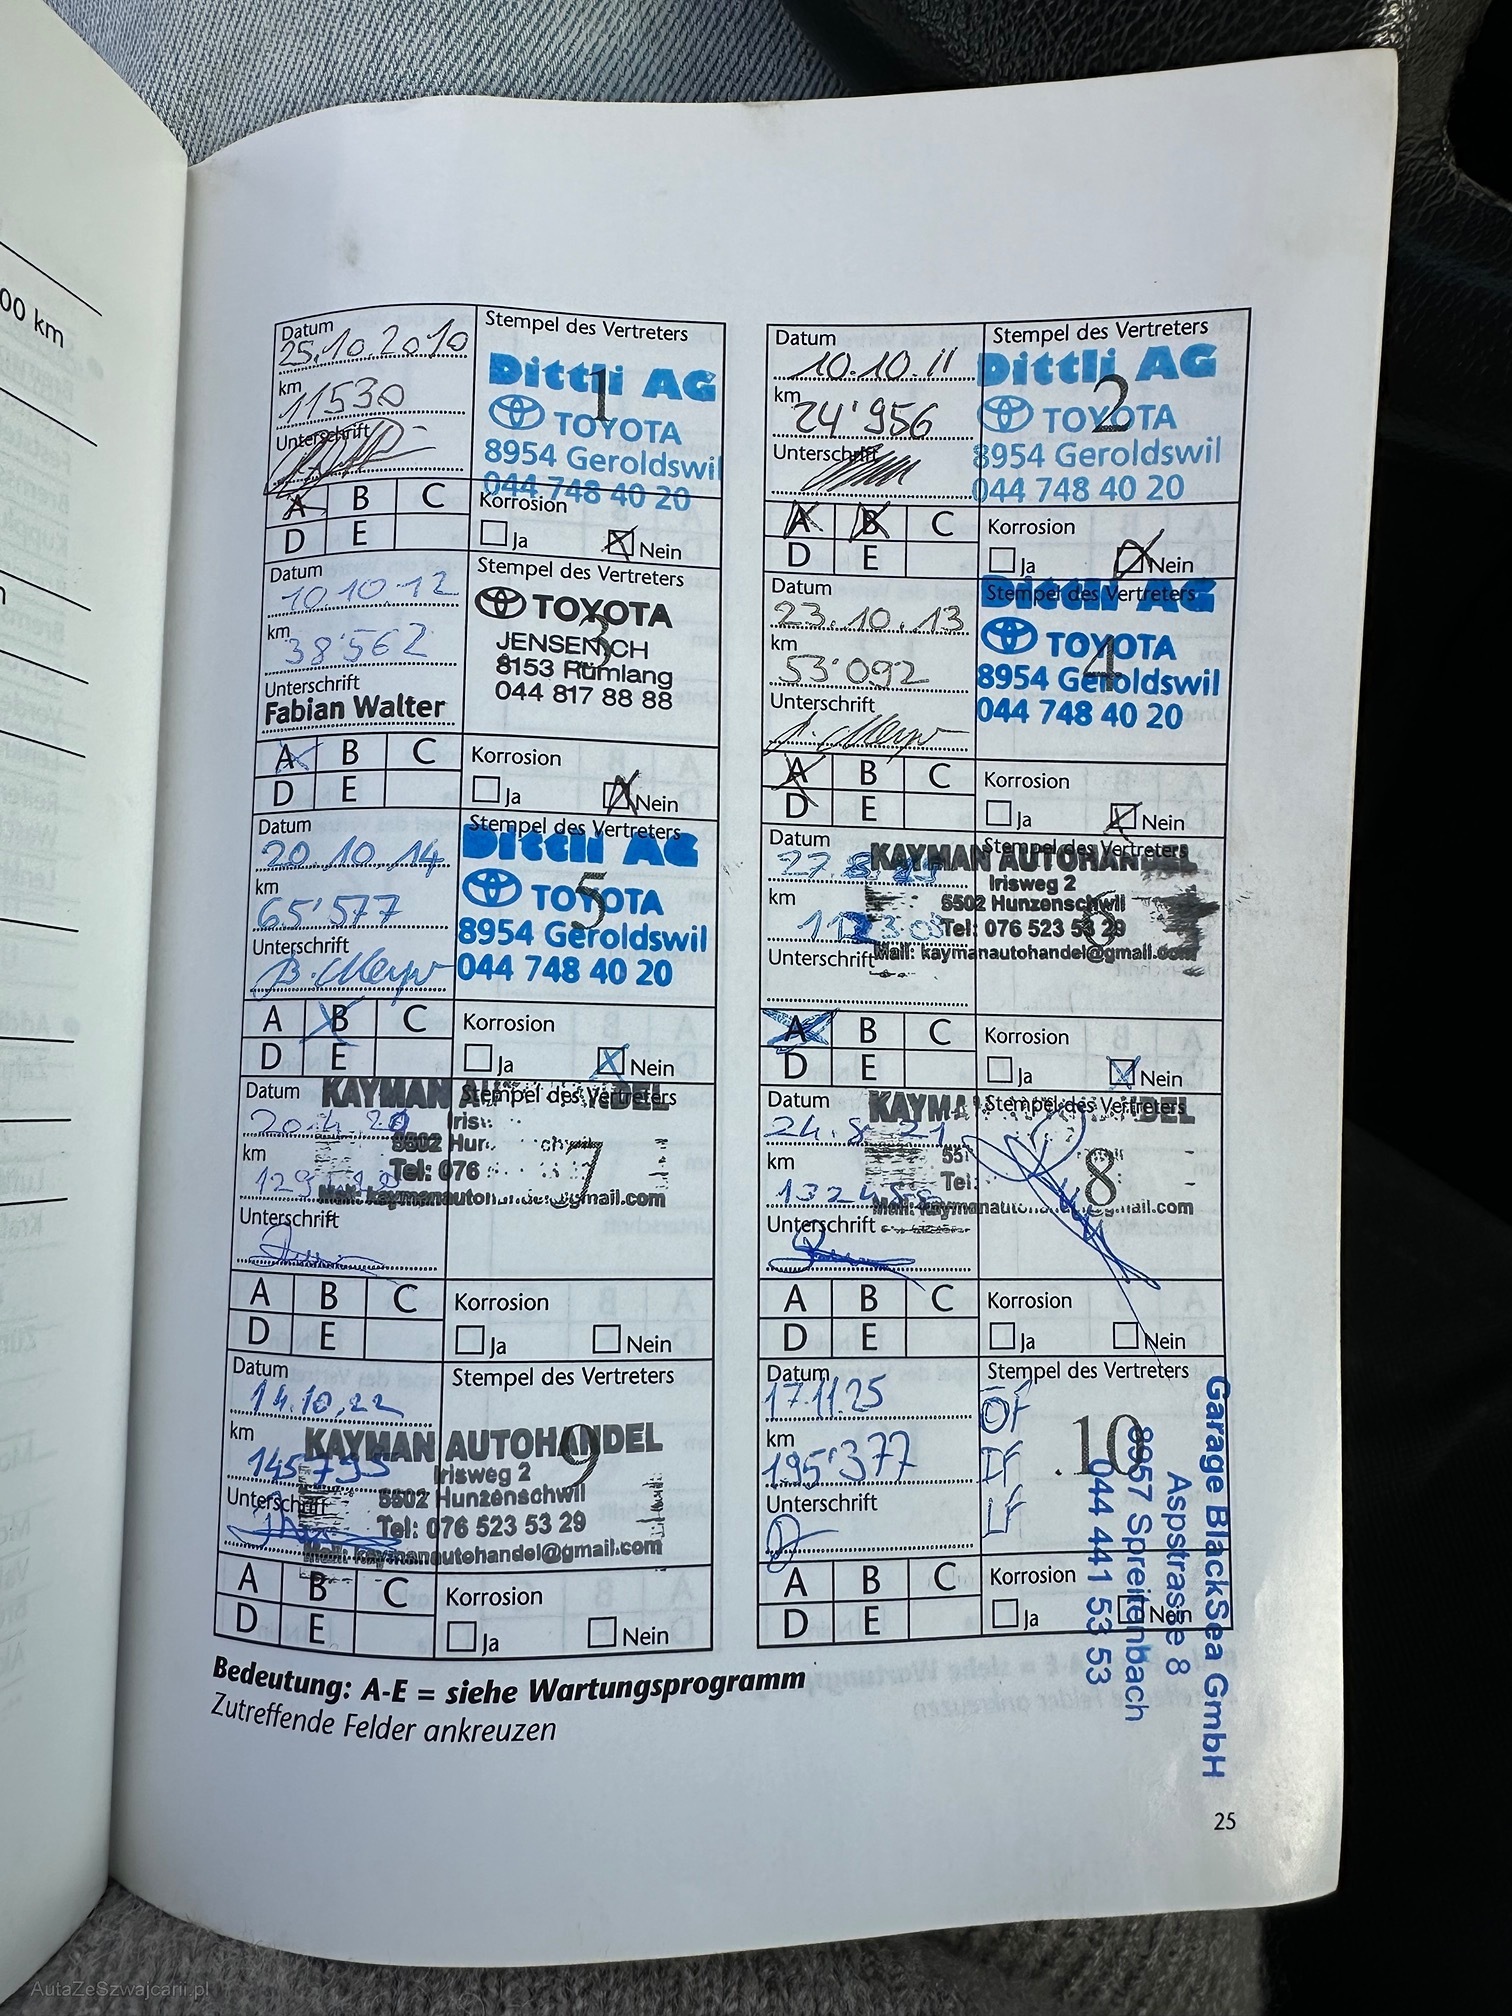 00 km
Datum
25.10.2010
km
11530
Unterschrift
Stempel des Vertreters
1
Dittli AG
TOYOTA
8954 Geroldswil
044 748 40 20
A B C
D E
Korrosion
Ja Nein
Datum
10.10.11
km
24'956
Unterschrift
Stempel des Vertreters
2
Dittli AG
TOYOTA
8954 Geroldswil
044 748 40 20
A B C
D E
Korrosion
Ja Nein
Datum
10.10.12
km
38'562
Unterschrift
Fabian Walter
Stempel des Vertreters
3
TOYOTA
JENSEN.CH
8153 Rümlang
044 817 88 88
A B C
D E
Korrosion
Ja Nein
Datum
23.10.13
km
53'092
Unterschrift
Stempel des Vertreters
4
Dittli AG
TOYOTA
8954 Geroldswil
044 748 40 20
A B C
D E
Korrosion
Ja Nein
Datum
20.10.14
km
65'577
Unterschrift
Stempel des Vertreters
5
Dittli AG
TOYOTA
8954 Geroldswil
044 748 40 20
A B C
D E
Korrosion
Ja Nein
Datum
km
Unterschrift
Stempel des Vertreters
6
KAYMAN AUTOHANDEL
Irisweg 2
5502 Hunzenschwil
Tel: 076 523 53 29
Mail: kaymanautohandel@gmail.com
A B C
D E
Korrosion
Ja Nein
Datum
20.4.20
km
Unterschrift
Stempel des Vertreters
7
KAYMAN
Tel: 076
A B C
D E
Korrosion
Ja Nein
Datum
24.8.21
km
Unterschrift
Stempel des Vertreters
8
Tel:
A B C
D E
Korrosion
Ja Nein
Datum
14.10.22
km
145795
Unterschrift
Stempel des Vertreters
9
KAYMAN AUTOHANDEL
Irisweg 2
5502 Hunzenschwil
Tel: 076 523 53 29
Mail: kaymanautohandel@gmail.com
A B C
D E
Korrosion
Ja Nein
Datum
17.11.25
km
195'377
Unterschrift
Stempel des Vertreters
10
ÖF
IF
LF
Garage BlackSea GmbH
Aspstrasse 8
8957 Spreitenbach
044 441 53 53
A B C
D E
Korrosion
Ja Nein
Bedeutung: A-E = siehe Wartungsprogramm
Zutreffende Felder ankreuzen
25
AutaZeSzwajcarii.pl